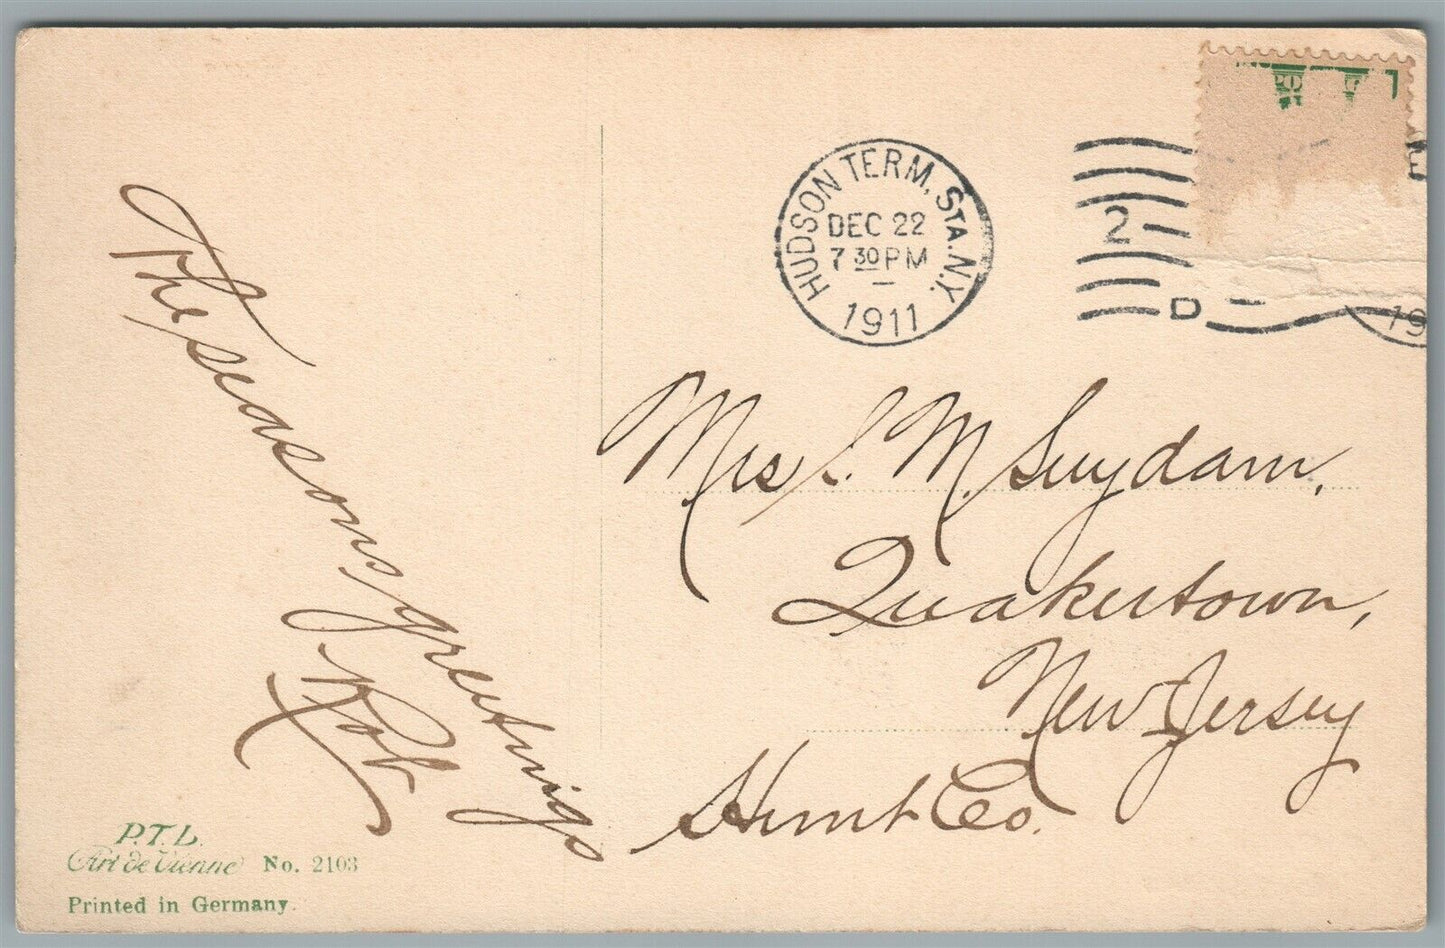 HUDSON TERM. STA. N.Y.
DEC 22
7 30 PM
1911
2
D
19
The seasons greetings
Rob
Mrs. M. Suydam,
Quakertown,
New Jersey
Hunt Co.
P.T.L.
Art de Vienne No. 2103
Printed in Germany.